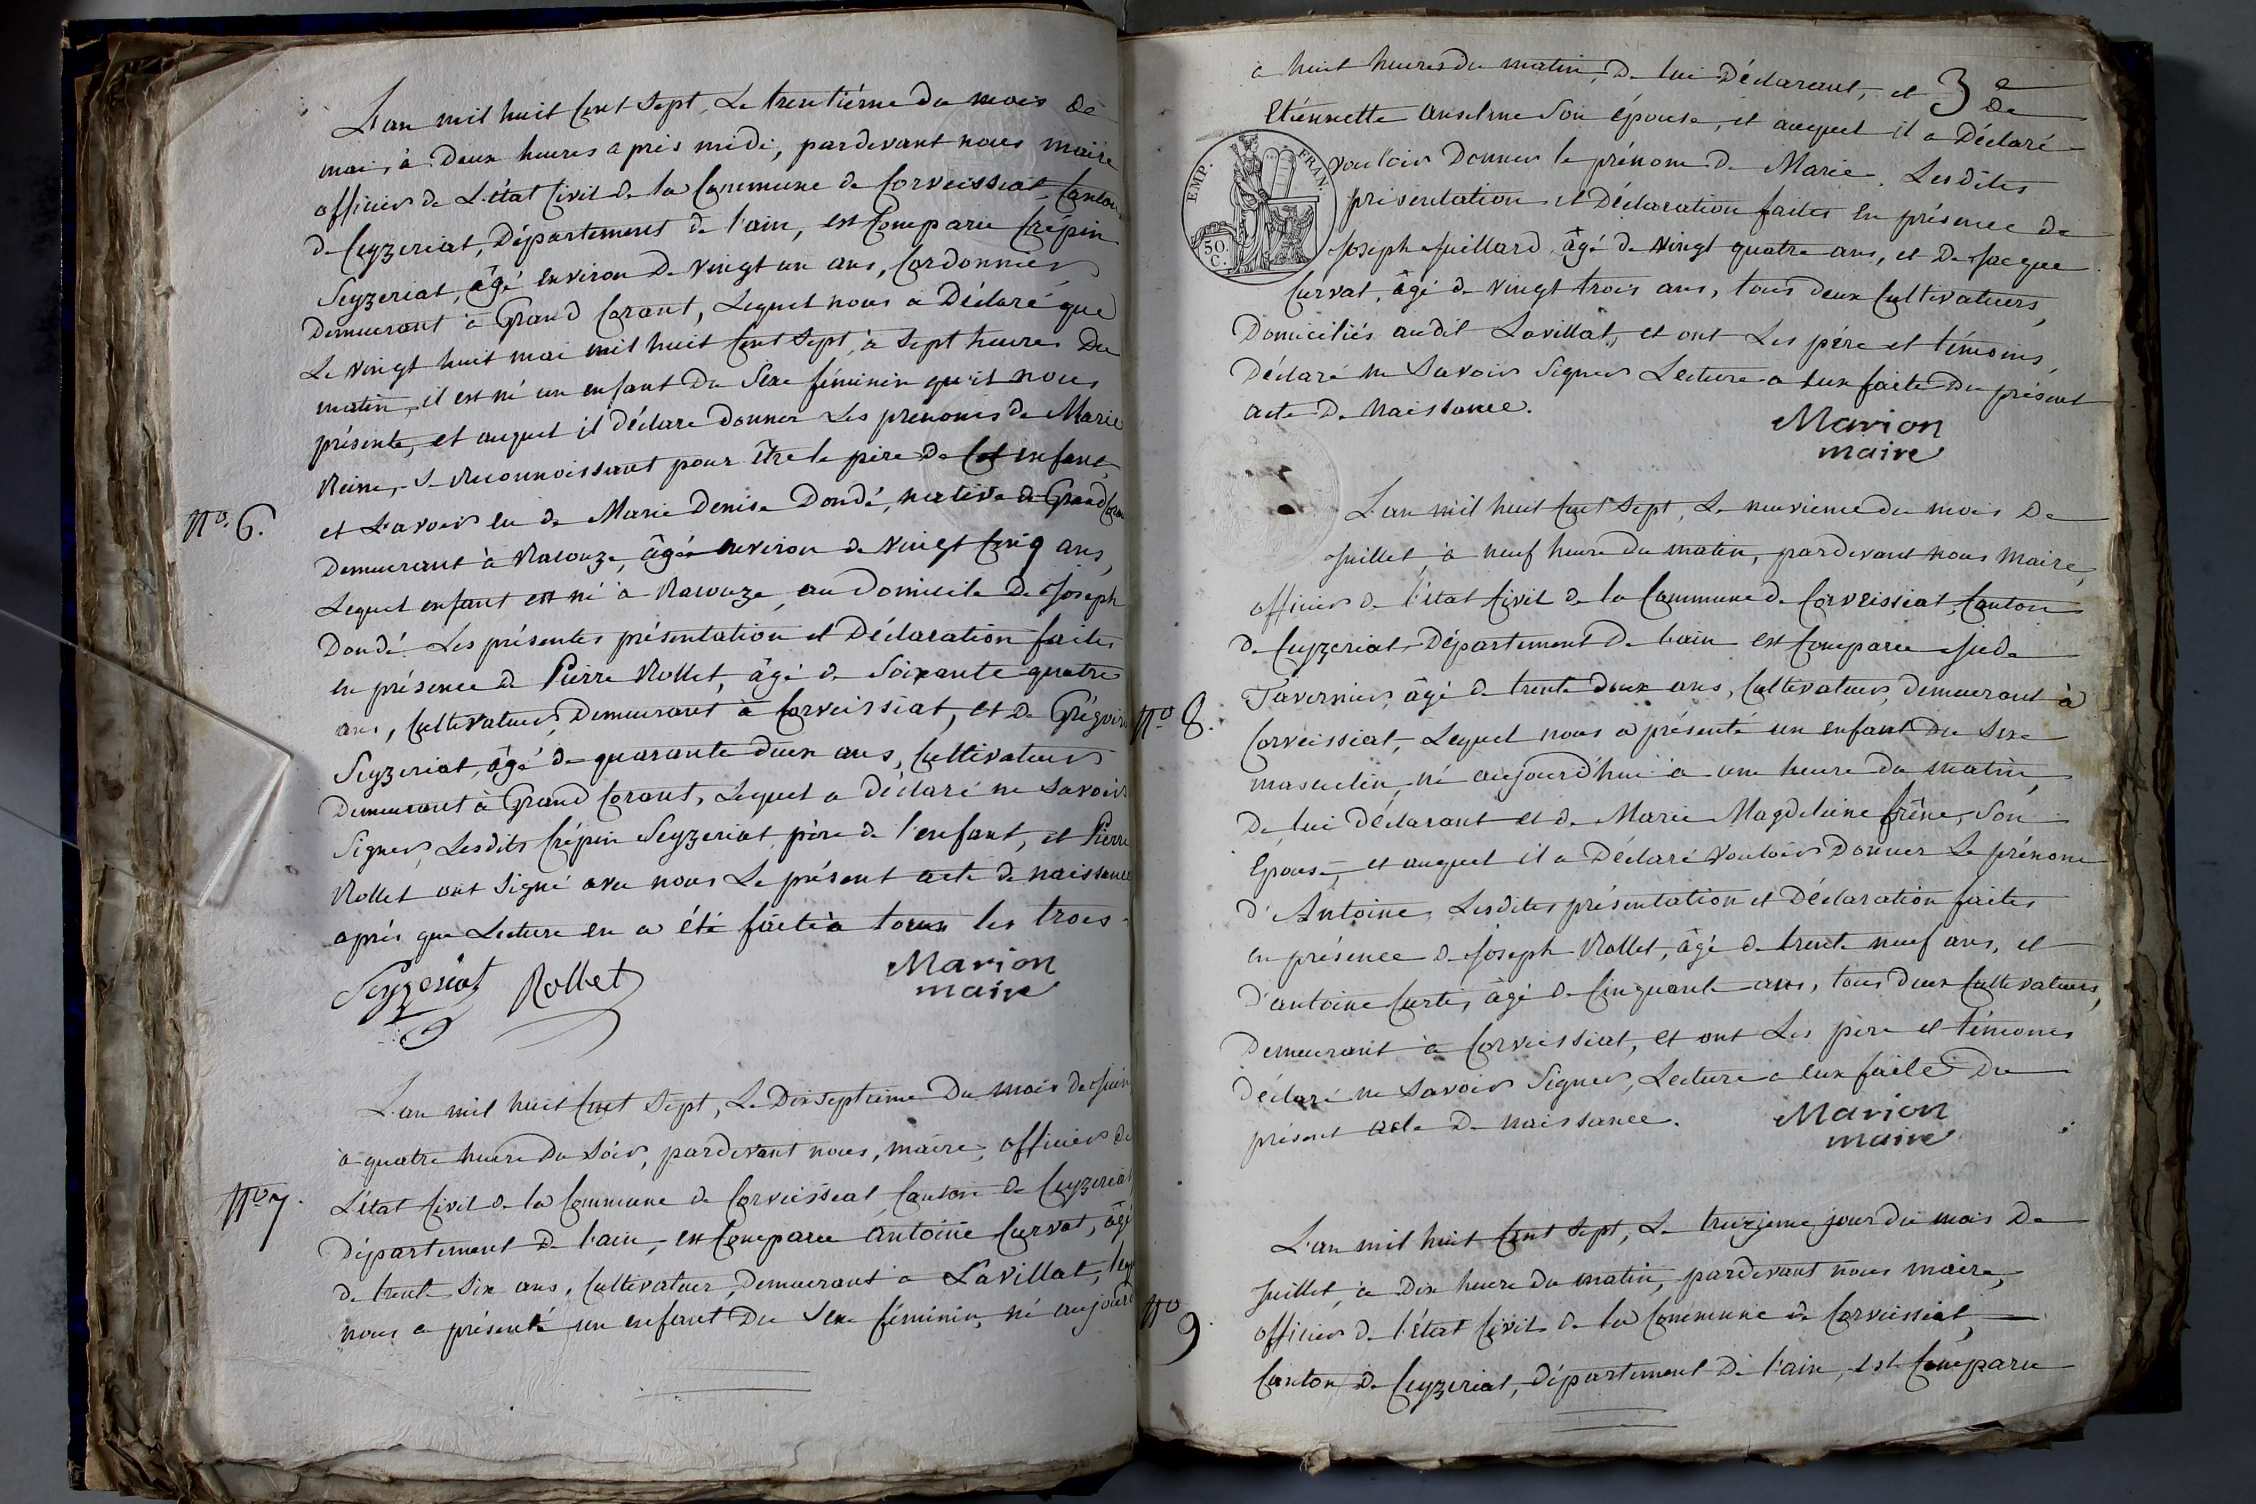 L'an mil huit Cent Sept, Le trentième du mois de
mai, à Deux heures après midi, pardevant nous maire
officier de L'état Civil de la Commune de Corveissiat, Canton
de Ceyzeriat, Département de l'ain, est Comparu Crépin
Seyzeriat, âgé environ de vingt un ans, Cordonnier
Demeurant à Grand Corant, Lequel nous a Déclaré que
Le vingt huit mai mil huit Cent Sept, à Sept heures Du
matin, il est né un enfant Du Sexe féminin qu'il nous
présente, et auquel il Déclare Donner Les prenoms de Marie
Reine, se Reconnoissant pour être le père de Cet enfant,
et L'avoir eu de Marie Denise Dondé, native de Grand Coran
Nº. 6.
Demeurant à Racouze, âgée environ de vingt Cinq ans,
Lequel enfant est né à Racouze, au Domicile De Joseph
Dondé. Les présentes présentation et Déclaration faites
en présence de Pierre Rollet, âgé de Soixante quatre
ans, Cultivateur, Demeurant à Corveissiat, et de Grégoire
Seyzeriat, âgé de quarante deux ans, Cultivateur
Demeurant à Grand Corant, Lequel a Déclaré ne Savoir
Signer, Lesdits Crépin Seyzeriat père de l'enfant, et Pierre
Rollet ont Signé avec nous Le présent acte de naissance
après que Lecture en a été faite à tous les trois.
Seyzeriat Rollet Marion
maire
L'an mil huit Cent Sept, Le Dix Septième Du mois de Juin
à quatre heure Du Soir, pardevant nous, maire, officier de
Nº 7.
L'état Civil de la Commune de Corveissiat Canton de Ceyzeriat
Département De l'ain, est Comparu Antoine Curvat, âgé
de trente Six ans, Cultivateur, Demeurant à Lavillat, leq
nous a présenté un enfant Du Sexe féminin, né aujourd
à huit heures du matin, De lui Déclarant, et De
3e
Etiennette Anselme Son épouse, et auquel il a Déclaré
vouloir Donner le prénom De Marie. Lesdites
présentation et Déclaration faites en présence de
Joseph Juillard âgé de vingt quatre ans, et De Jacque
Curvat, âgé de vingt trois ans, tous deux Cultivateurs,
EMP. FRAN.
50 C.
Domiciliés audit Lavillat, et ont Les père et témoins,
Déclaré ne Savoir Signer Lecture a eux faite Du présent
acte De Naissance.
Marion
maire
L'an mil huit Cent Sept, Le neuvieme du mois De
Juillet, à neuf heure du matin, pardevant nous Maire,
officier de l'état Civil de la Commune de Corveissiat, Canton
de Ceyzeriat Département De l'ain est Comparu Jude
Tavernier, âgé de trente deux ans, Cultivateur, demeurant à
Nº 8.
Corveissiat, Lequel nous a présenté un enfant Du Sexe
masculin, né aujourd'hui à une heure du matin,
De lui Déclarant et de Marie Magdeleine frêne, Son
Epouse, et auquel il a Déclaré vouloir Donner Le prénom
d'Antoine, Lesdites présentation et Déclaration faites
en présence de Joseph Rollet, âgé de trente neuf ans, et
d'antoine Curti, âgé de Cinquante ans, tous deux Cultivateurs,
Demeurant à Corveissiat, et ont Les père et témoins
déclaré ne Savoir Signer, Lecture a eux faite Du
présent acte De naissance.
Marion
maire
L'an mil huit Cent Sept, Le treizieme jour du mois De
Juillet, à Dix heure du matin, pardevant nous maire,
Nº 9
officier de l'état Civil de la Commune de Corveissiat,
Canton de Ceyzeriat, département De l'ain, est Comparu